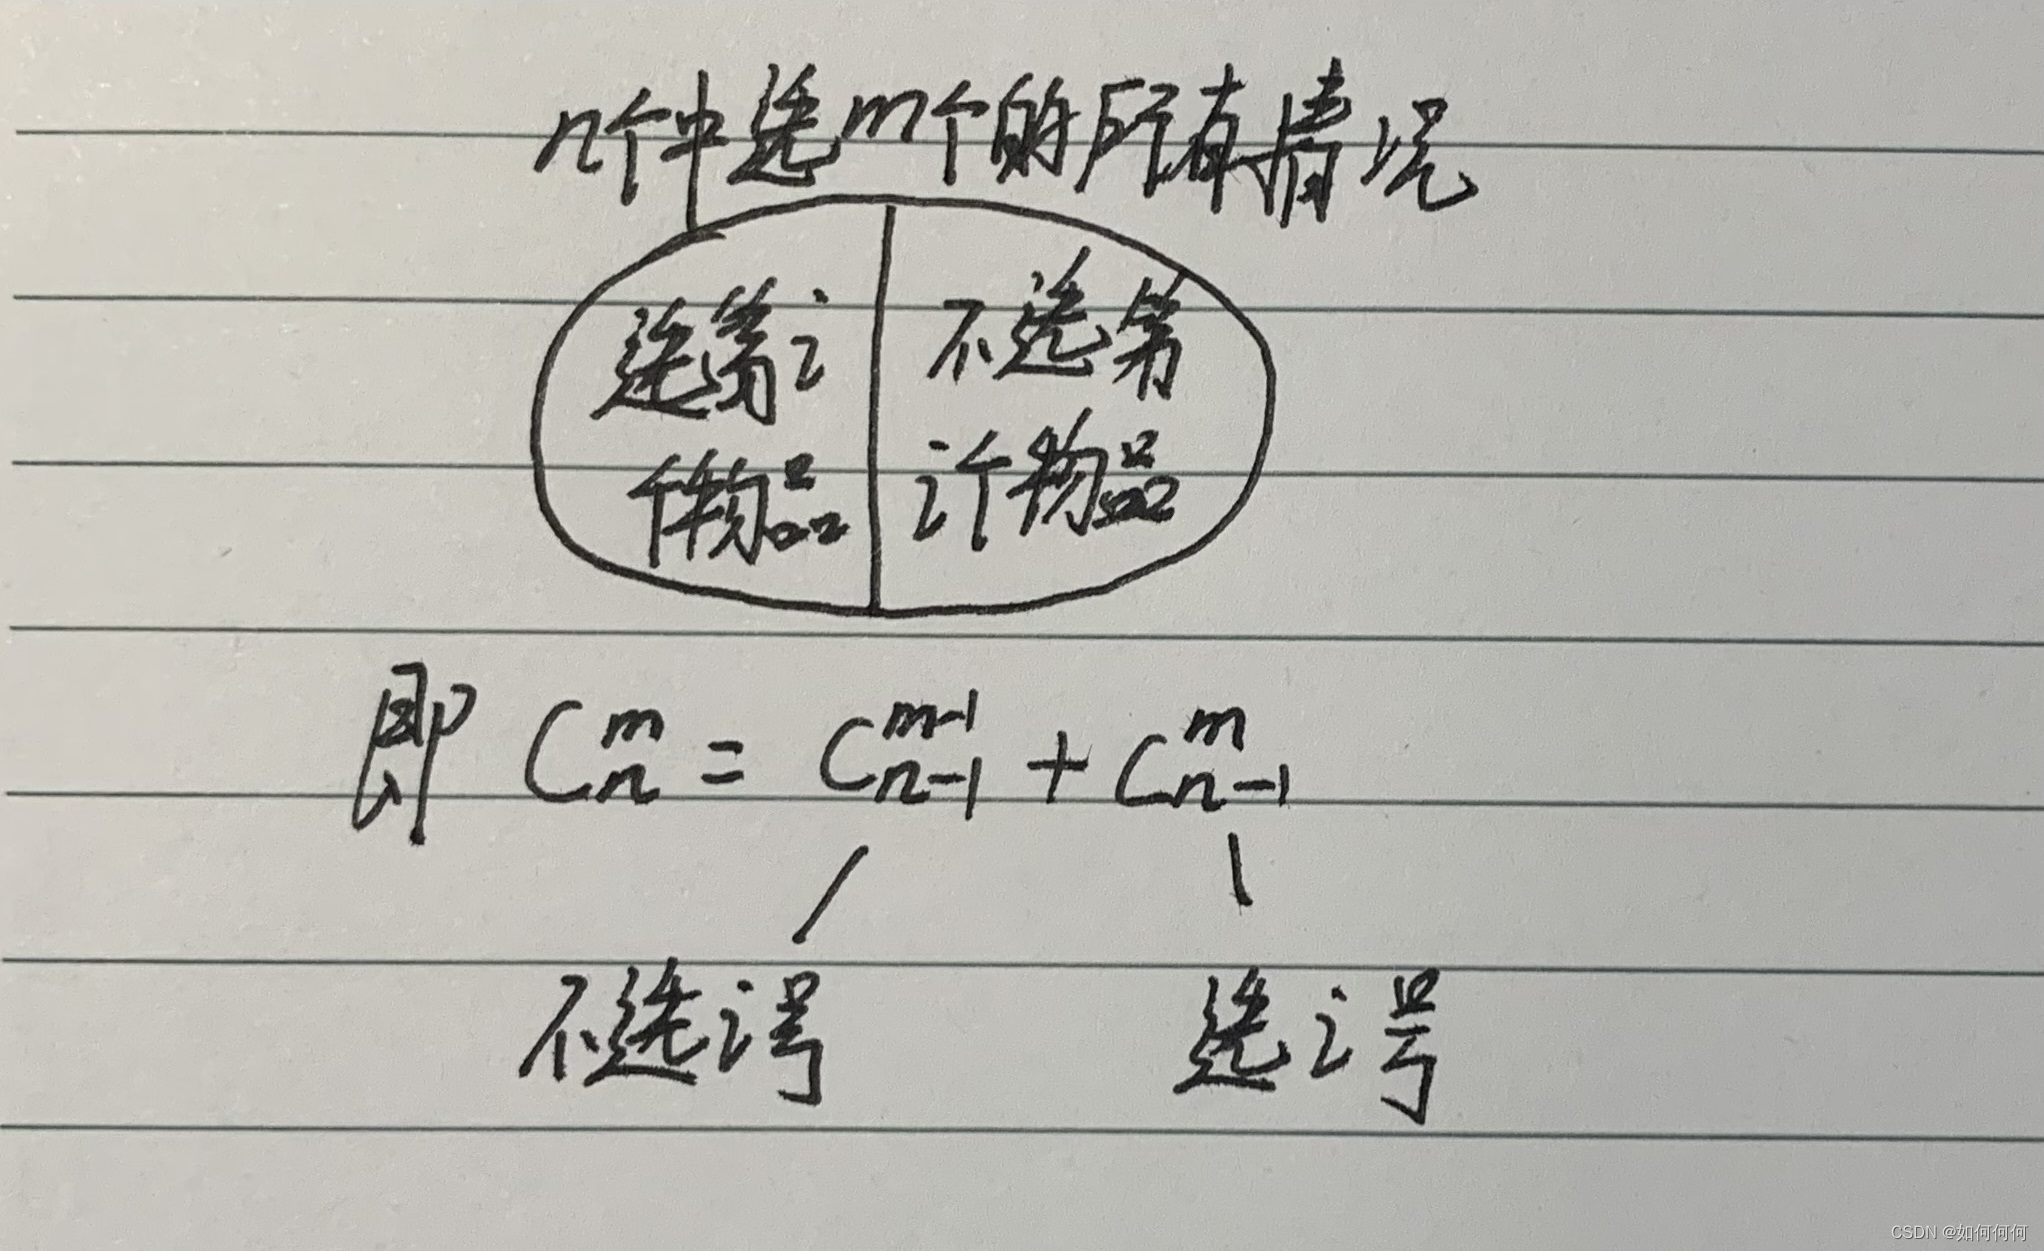 n个中选m个的所有情况
选第i
个物品
不选第
i个物品
即 C_n^m = C_{n-1}^{m-1} + C_{n-1}^m
不选i号
选i号
CSDN @如何何何